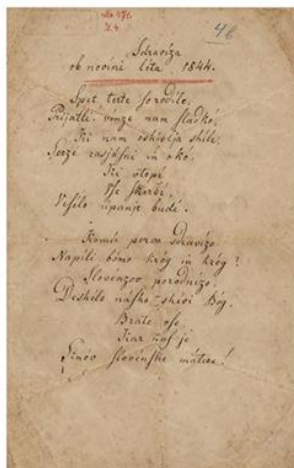 46
Sdravíza
ob novini léta 1844.
Spet terte ſo rodíle,
Prijatli! vinze nam ſladkó,
Ki nam oshivlja shile,
Serzé rasjáſni in okó,
Ki vtopí
Vſe ſkerbí,
Veſélo úpanje budí.
Komúr pervo sdravízo
Napíli bómo króg in króg?
Slovénzov porodnízo,
Deshélo náſho shivi Bóg,
Brate vſe,
Kar naſ je
Sinóv ſlovénſke mátere!